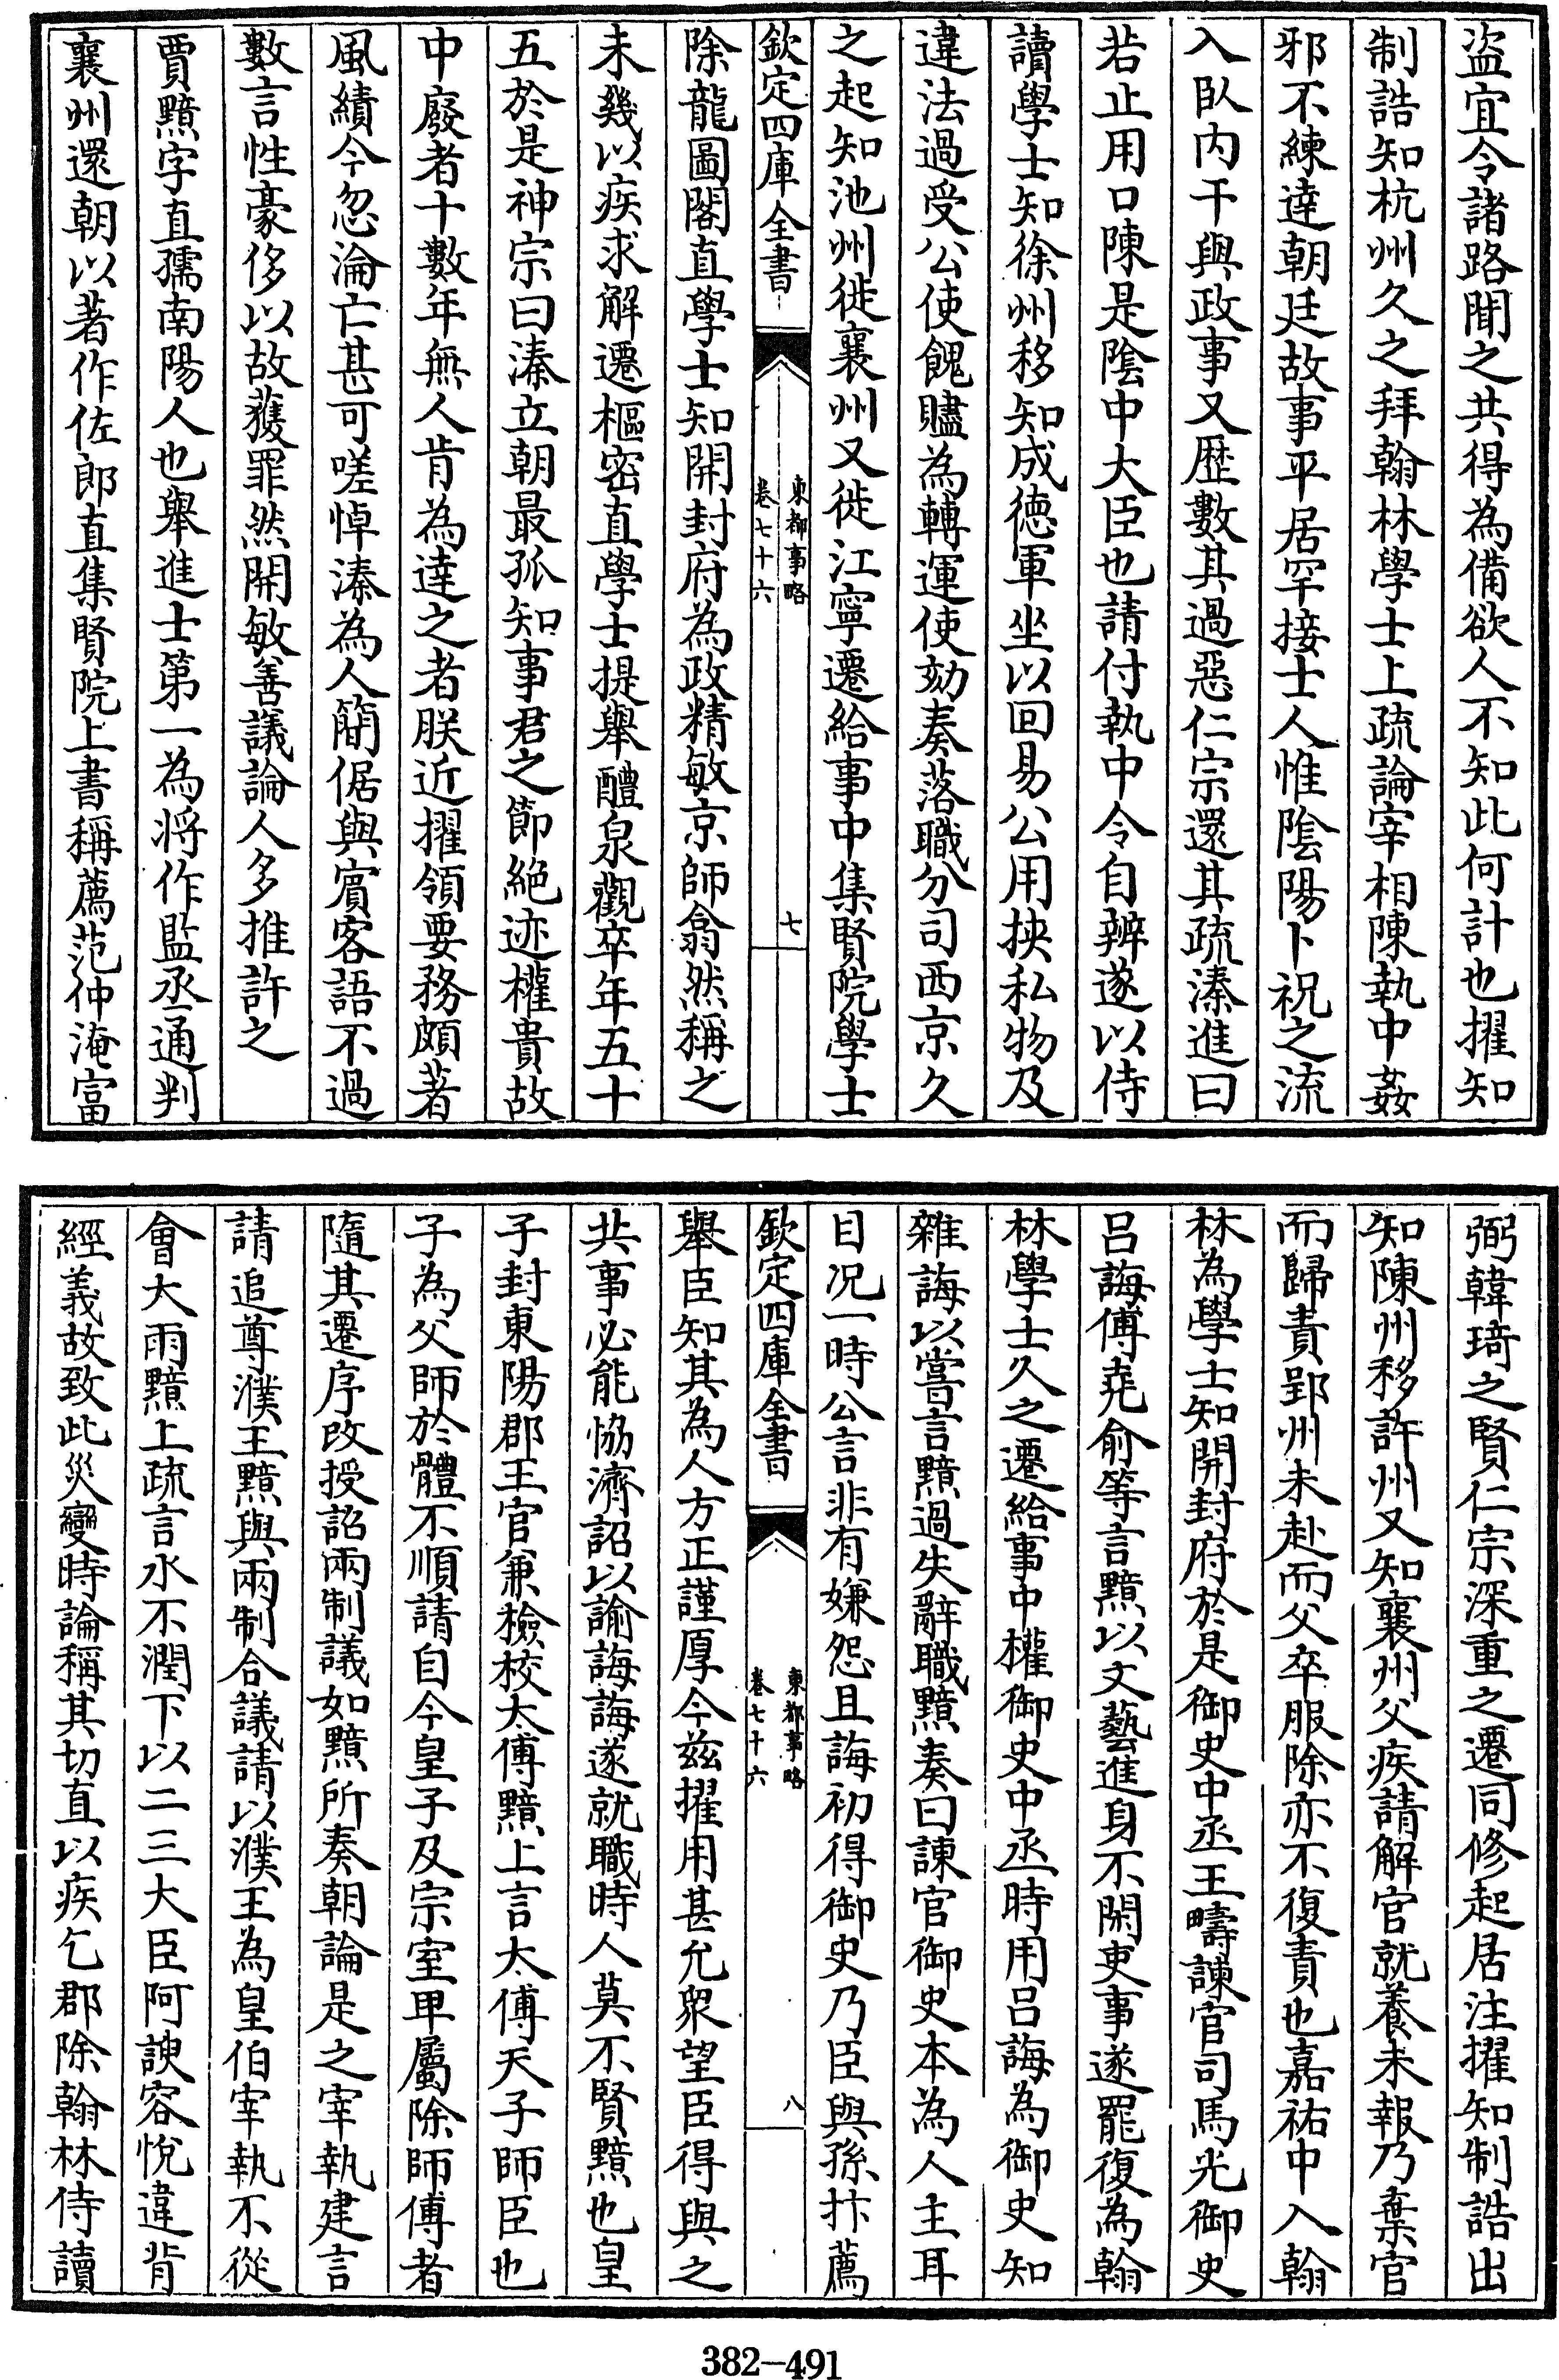 盗宜令諸路聞之共得為備欲人不知此何計也擢知
制誥知杭州久之拜翰林學士上疏論宰相陳執中姦
邪不練達朝廷故事平居罕接士人惟陰陽卜祝之流
入臥内干與政事又歴數其過惡仁宗還其疏溱進曰
若止用口陳是陰中大臣也請付執中令自辨遂以侍
讀學士知徐州移知成德軍坐以回易公用挾私物及
違法過受公使餽贐為轉運使劾奏落職分司西京久
之起知池州徙襄州又徙江寧遷給事中集賢院學士
欽定四庫全書
東都事略
卷七十六
七
除龍圖閣直學士知開封府為政精敏京師翕然稱之
未幾以疾求解遷樞密直學士提舉醴泉觀卒年五十
五於是神宗曰溱立朝最孤知事君之節絶迹權貴故
中廢者十數年無人肯為達之者朕近擢領要務頗著
風績今忽淪亡甚可嗟悼溱為人簡倨與賓客語不過
數言性豪侈以故獲罪然開敏善議論人多推許之
賈黯字直孺南陽人也舉進士第一為将作監丞通判
襄州還朝以著作佐郎直集賢院上書稱薦范仲淹富
弼韓琦之賢仁宗深重之遷同修起居注擢知制誥出
知陳州移許州又知襄州父疾請解官就養未報乃棄官
而歸責郢州未赴而父卒服除亦不復責也嘉祐中入翰
林為學士知開封府於是御史中丞王疇諫官司馬光御史
吕誨傅堯俞等言黯以文藝進身不閑吏事遂罷復為翰
林學士久之遷給事中權御史中丞時用吕誨為御史知
雜誨以嘗言黯過失辭職黯奏曰諫官御史本為人主耳
目况一時公言非有嫌怨且誨初得御史乃臣與孫抃薦
欽定四庫全書
東都事略
卷七十六
八
舉臣知其為人方正謹厚今兹擢用甚允衆望臣得與之
共事必能恊濟詔以諭誨誨遂就職時人莫不賢黯也皇
子封東陽郡王官兼檢校太傅黯上言太傅天子師臣也
子為父師於體不順請自今皇子及宗室卑屬除師傅者
隨其遷序改授詔兩制議如黯所奏朝論是之宰執建言
請追尊濮王黯與兩制合議請以濮王為皇伯宰執不從
會大雨黯上疏言水不潤下以二三大臣阿諛容悅違背
經義故致此災變時論稱其切直以疾乞郡除翰林侍讀
382-491